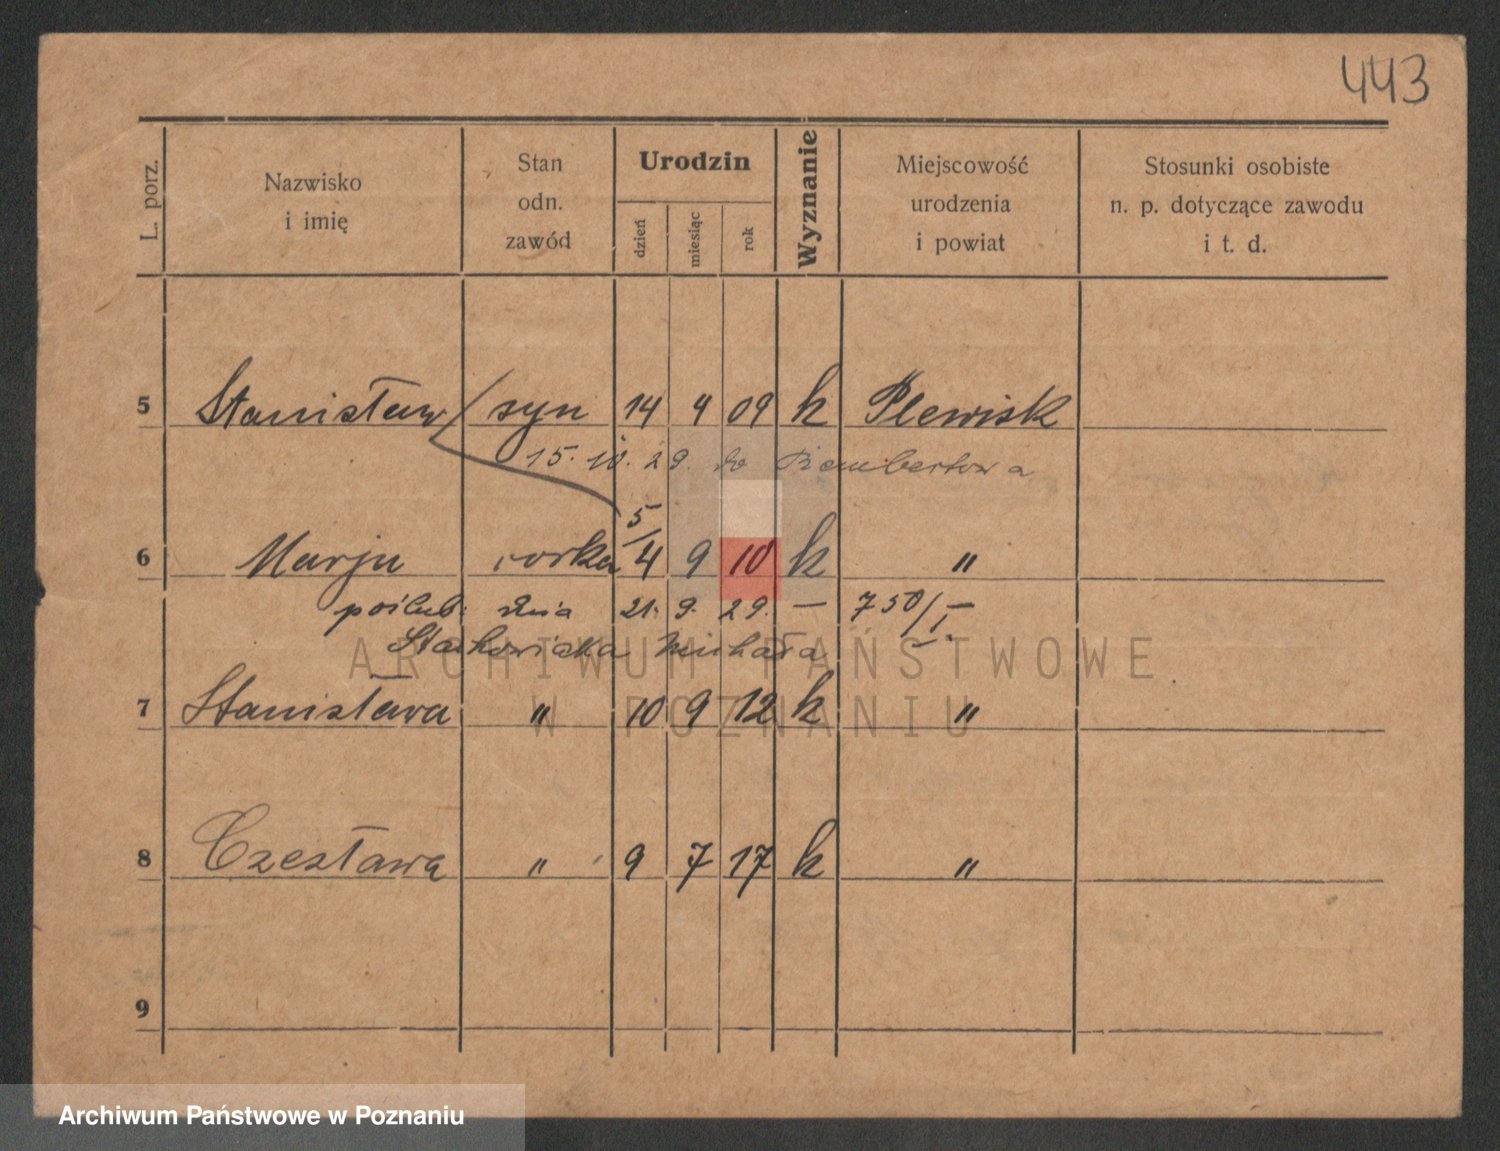 443
L. porz.
Nazwisko
i imię
Stan
odn.
zawód
Urodzin
dzień
miesiąc
rok
Wyznanie
Miejscowość
urodzenia
i powiat
Stosunki osobiste
n. p. dotyczące zawodu
i t. d.
5 Stanisław syn 14 4 09 k Plewisk
15. 10. 29. do Rembertowa
5/
6 Marja corka 4 9 10 k "
poślub: dnia 21. 9. 29. — 750/I —
Stachowiaka Michała
7 Stanisława " 10 9 12 k "
8 Czesława " 9 7 17 k "
9
ARCHIWUM PAŃSTWOWE
W POZNANIU
Archiwum Państwowe w Poznaniu